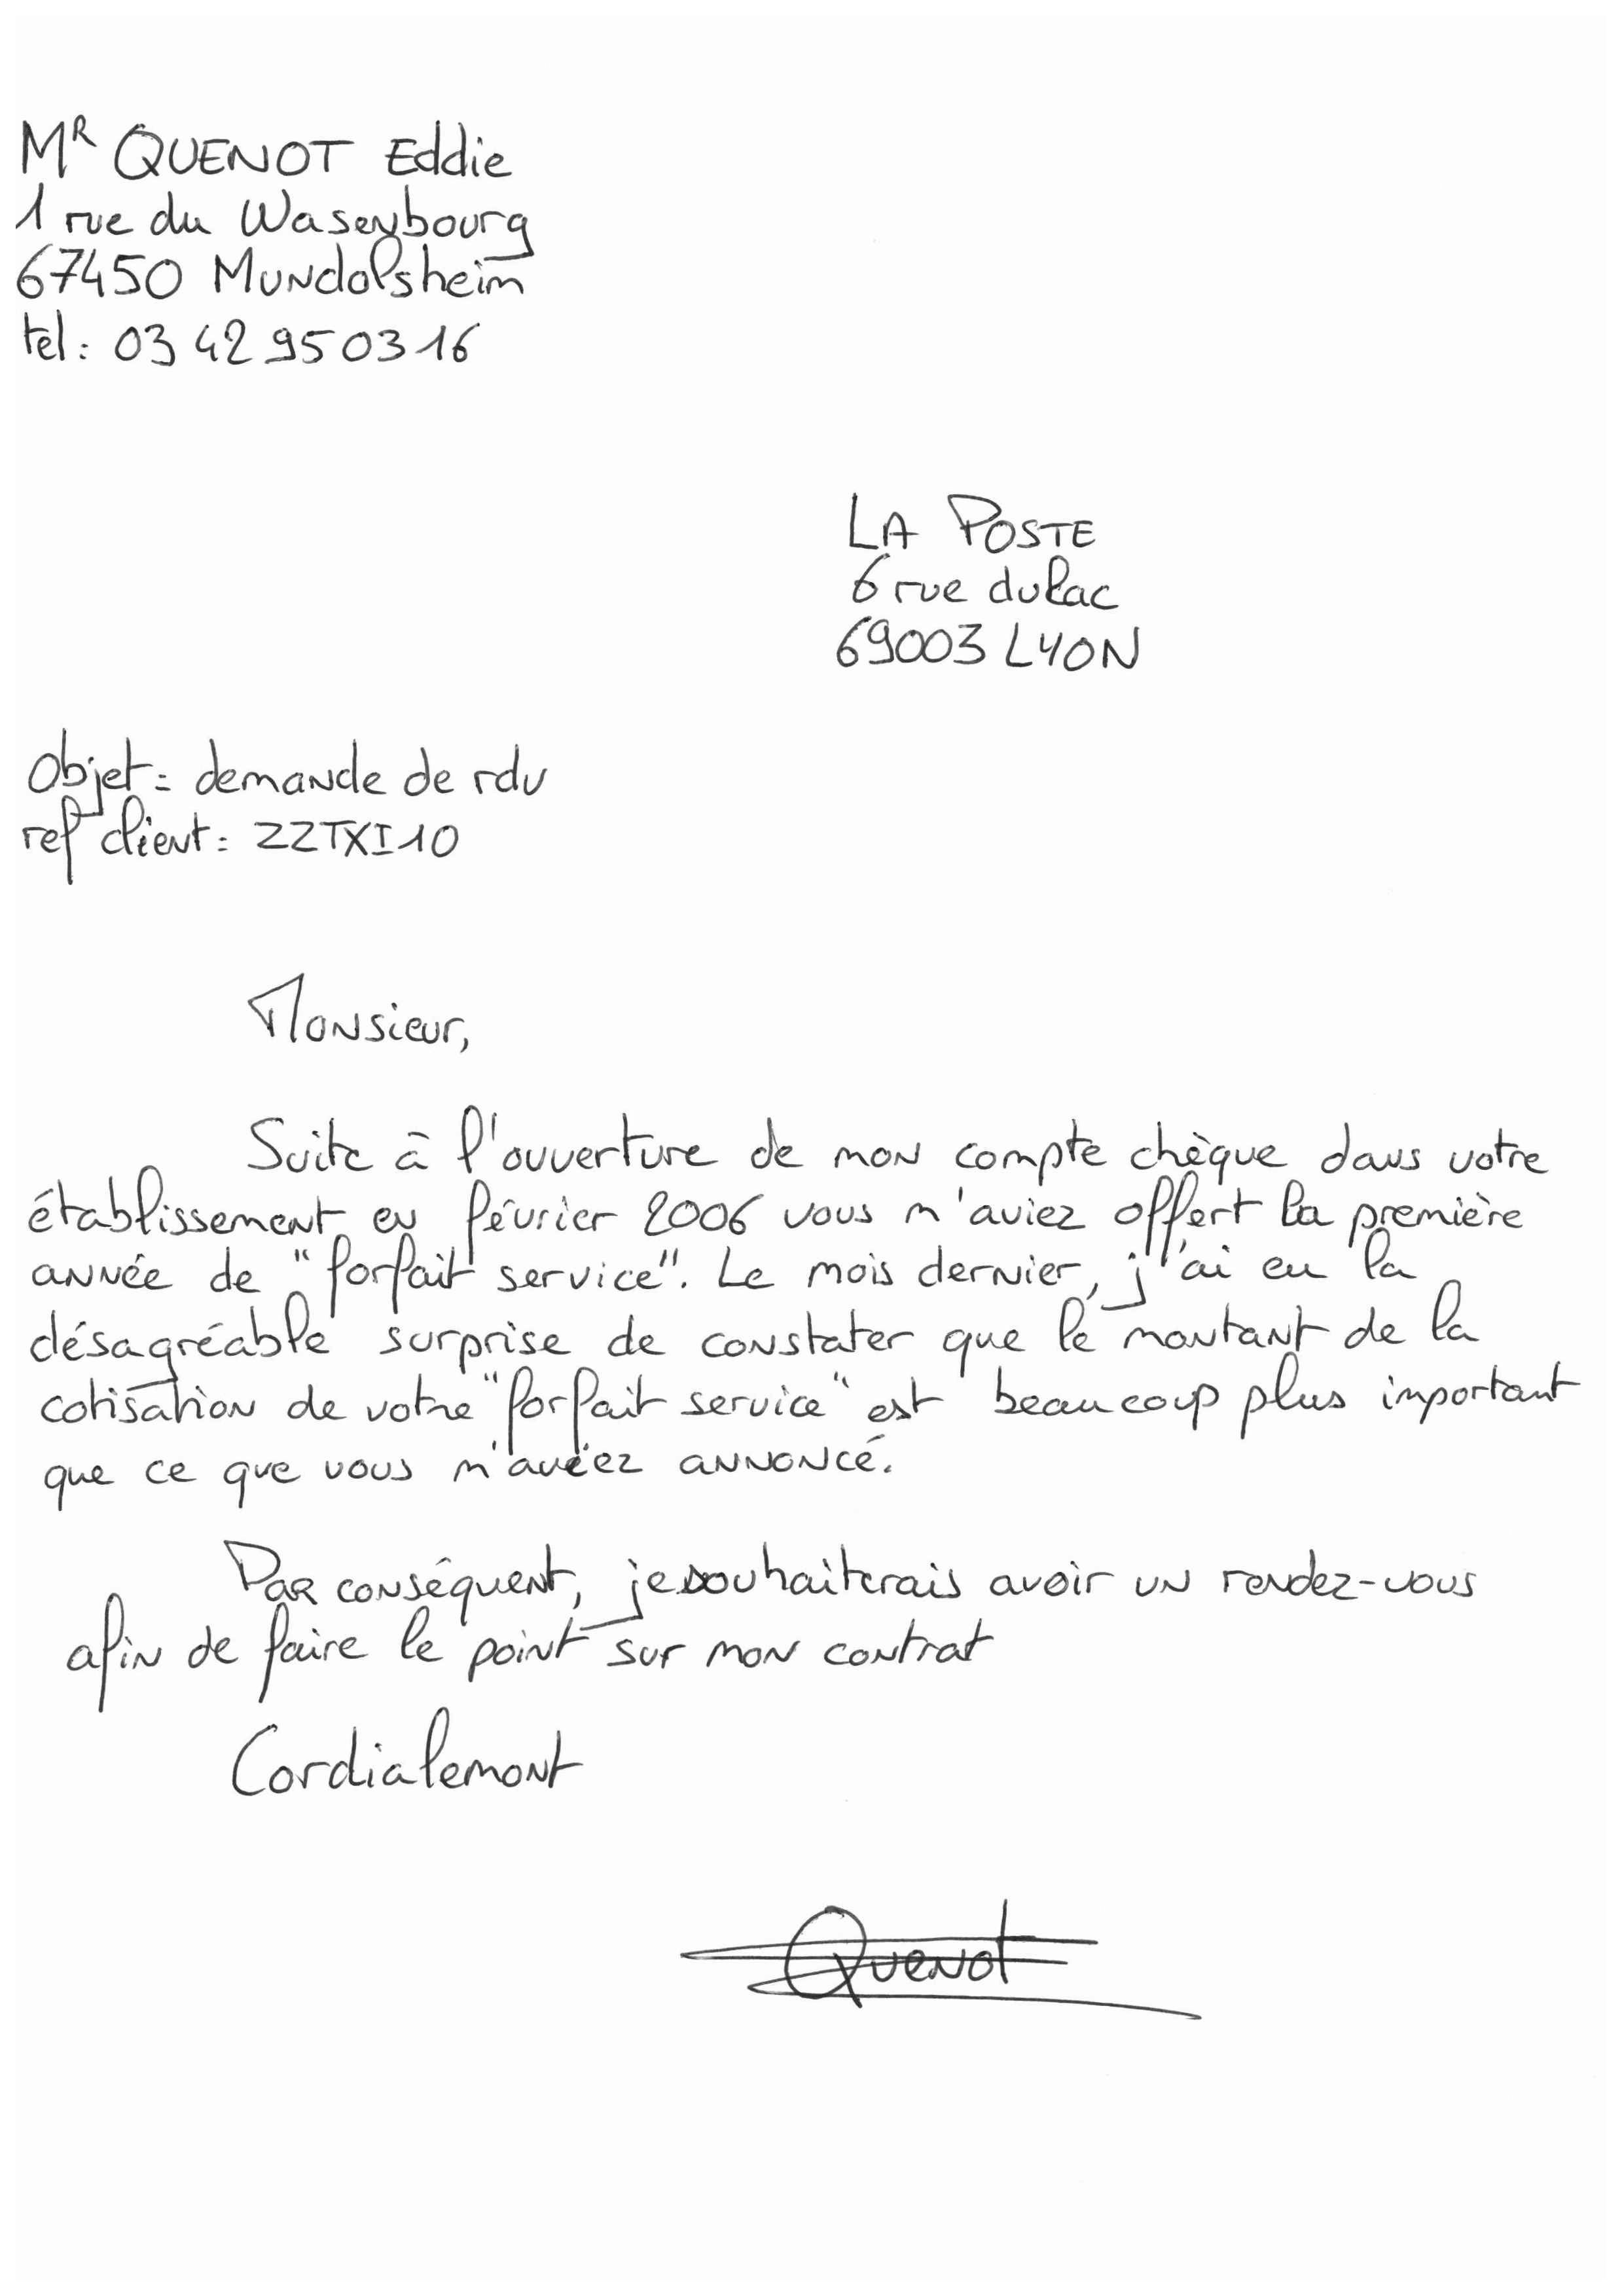 MR QUENOT Eddie
1 rue du Wasenbourg
67450 Mundolsheim
tel: 03 42 95 03 16
LA POSTE
6 rue du lac
69003 LYON
Objet: demande de rdv
ref client: ZZTXI10
Monsieur,
Suite à l'ouverture de mon compte chèque dans votre
établissement en février 2006 vous m'aviez offert la première
année de "forfait service". Le mois dernier, j'ai eu la
désagréable surprise de constater que le montant de la
cotisation de votre "forfait service" est beaucoup plus important
que ce que vous m'aviez annoncé.
Par conséquent, je souhaiterais avoir un rendez-vous
afin de faire le point sur mon contrat
Cordialement
Quenot